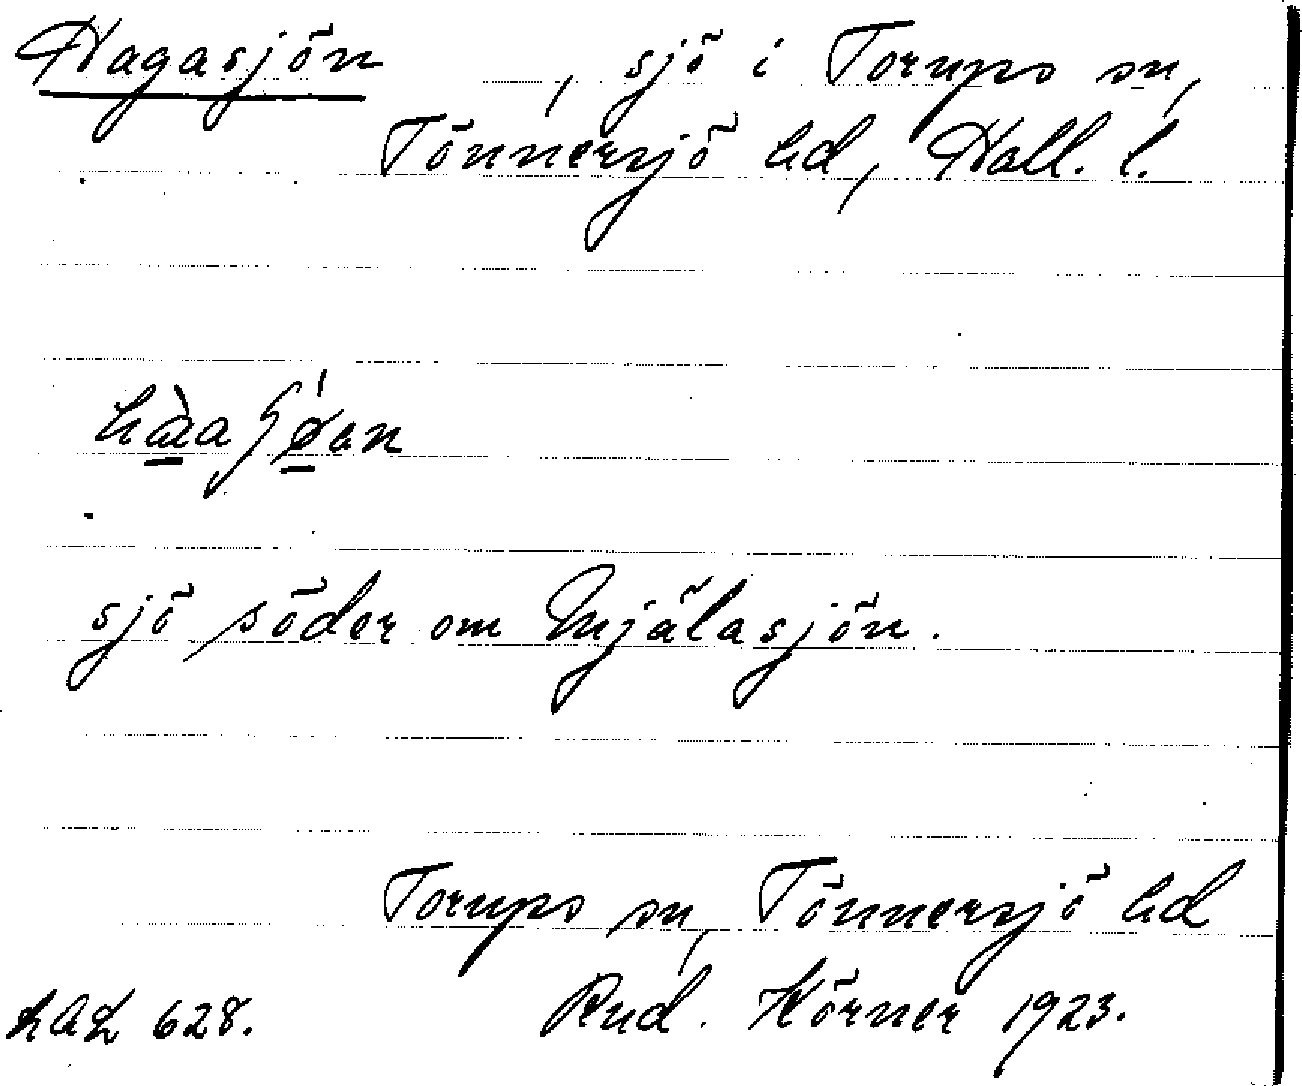 Hagasjön , sjö i Torups sn,
Tönnersjö hd, Hall. l.
sjö söder om Mjälasjön.
Torups sn, Tönnersjö hd
LAL 628. Rud. Körner 1923.